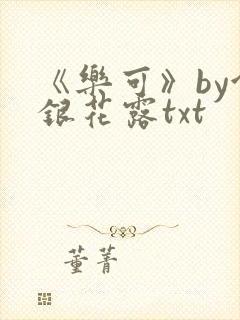 《樂可》by
銀花露txt
董菁